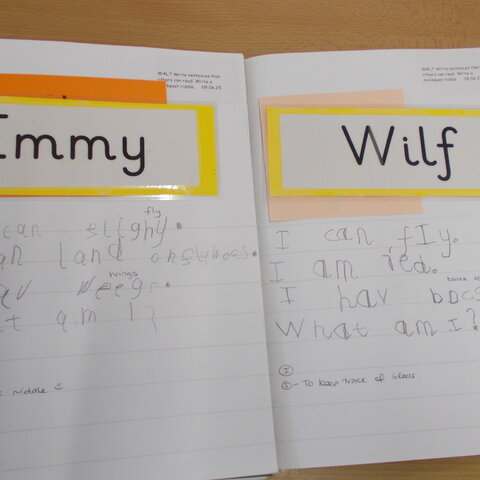 WALT Write sentences that
others can read. Write a
minibeast riddle. 09.06.25
Immy
fly
can slighy.
an land on
wings
av weegs.
at am I?
middle ☺
WALT Write sentences that
others can read. Write a
minibeast riddle. 09.06.25
Wilf
I can fly.
I am red.
black
I hav bocs
What am I?
I
S - To keep track of ideas.